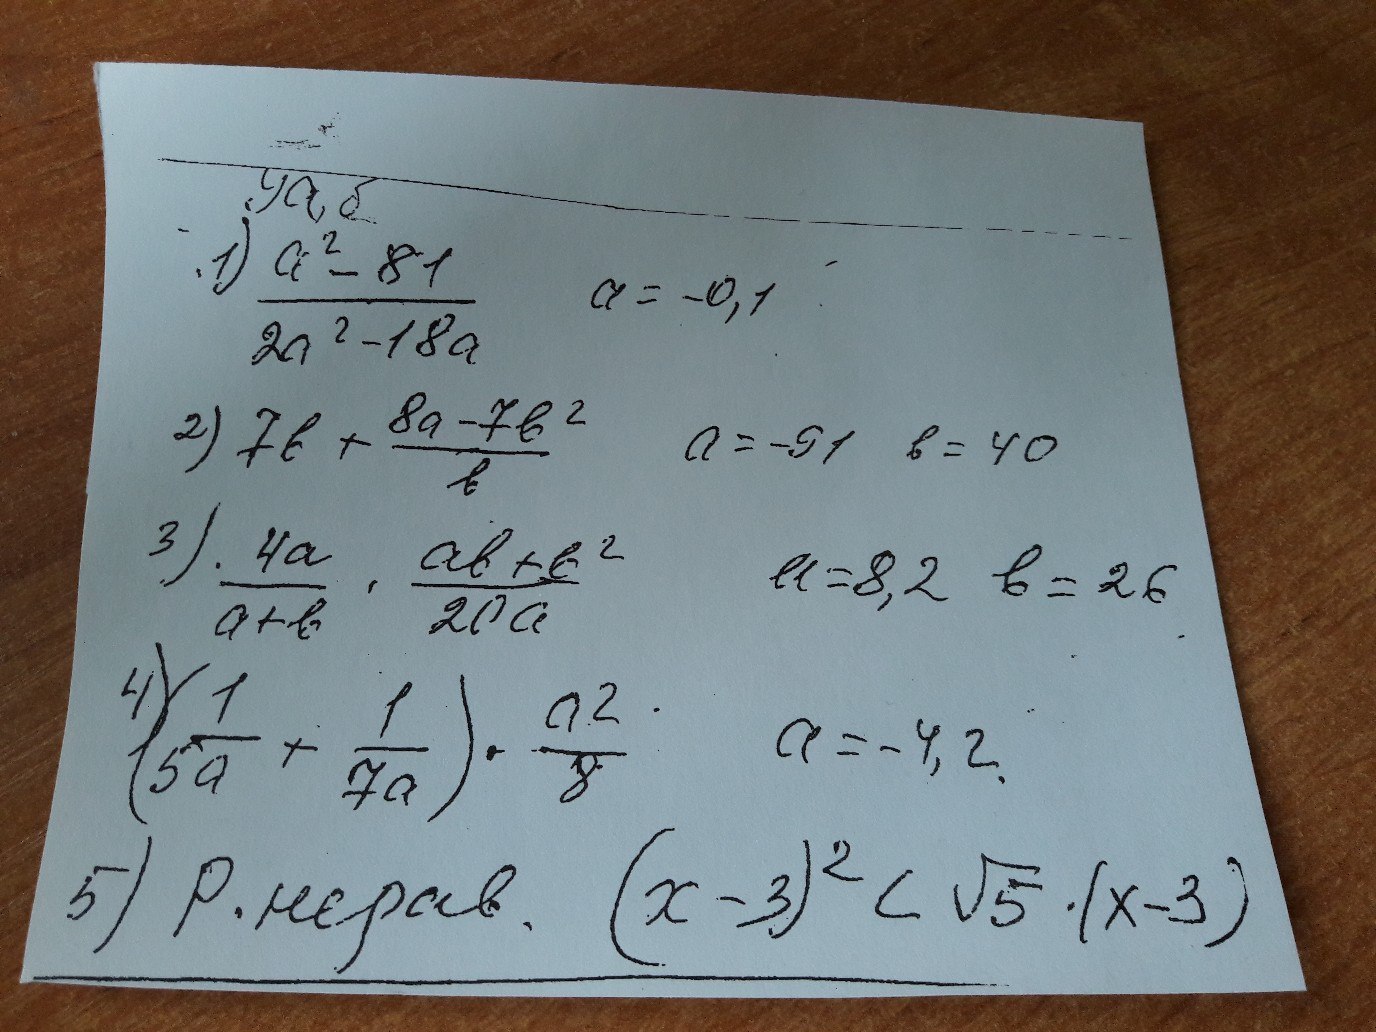 Уа,б
1) (a² - 81)/(2a² - 18a) a = -0,1
2) 7b + (8a - 7b²)/b a = -51 b = 40
3) 4a/(a + b) · (ab + b²)/(20a) a = 8,2 b = 26
4) (1/(5a) + 1/(7a)) · a²/8 a = -4,2
5) Р. нерав. (x - 3)² < √5 · (x - 3)